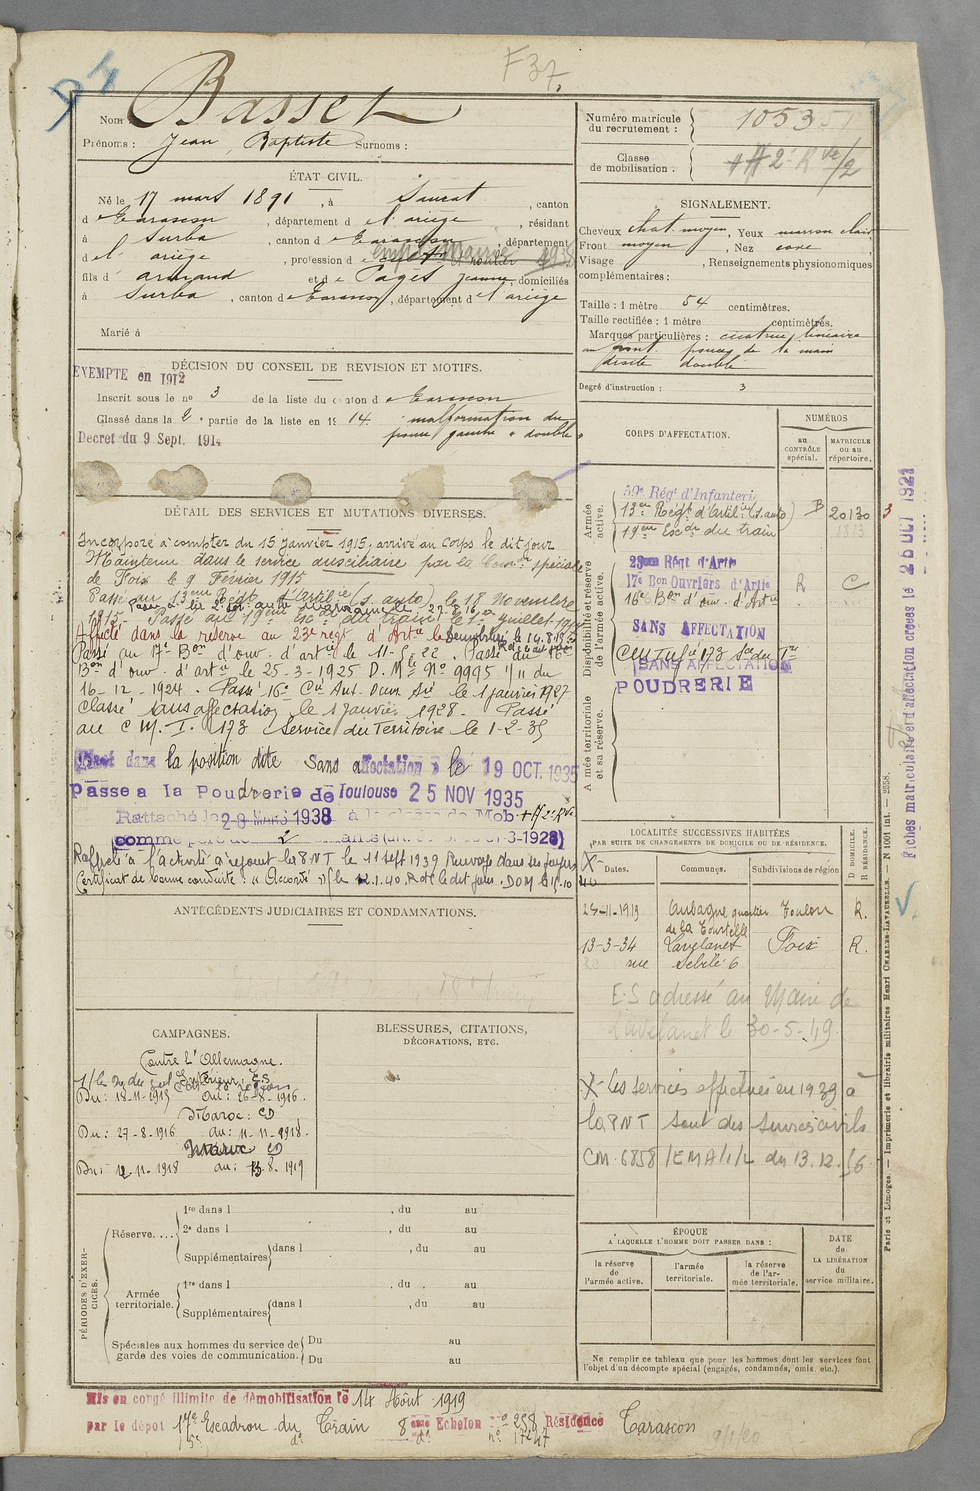 F 37.
Nom : Basset
Prénoms : Jean, Baptiste Surnoms :
ÉTAT CIVIL.
Né le 17 mars 1891, à Saurat, canton
de Tarascon, département de l'ariège, résidant
à Surba, canton de Tarascon, département
de l' ariège, profession de
fils d' armand et de Pagès Jeanne, domiciliés
à Surba, canton de Tarascon, département de l'ariège
Marié à
DÉCISION DU CONSEIL DE REVISION ET MOTIFS.
EXEMPTE en 1912
Inscrit sous le n° 3 de la liste du canton de Tarascon
Classé dans la 2e partie de la liste en 1914. malformation du
Decret du 9 Sept. 1914 pouce gauche « double »
DÉTAIL DES SERVICES ET MUTATIONS DIVERSES.
Incorporé à compter du 15 Janvier 1915, arrivé au corps le dit jour
Maintenu dans le service auxiliaire par la Comon spéciale
de Foix le 9 Février 1915
Passé au 13ème Régt d'Artilie (s. auto) le 18 Novembre
1915. Passé au 19ème Esc. du train le 1er Juillet
Affecté dans la réserve au 23e regt d'Artie le
Passé au 17e Bon d'ouv. d'artie le 11-5-22. Passé au 16e
Bon d'ouv. d'artie le 25-3-1925 D. Mle No 9995 1/11 du
16-12-1924. Passé 16e Cie Aut. Ouv. Aie le 1 janvier 1927
Classé sans affectation le 1 Janvier 1928. Passé
au C.M.I. 173 (Service du Territoire le 1-2-35
Classé dans la position dite Sans affectation le 19 OCT. 1935
Passe a la Poudrerie de Toulouse 25 NOV 1935
Rattaché le 28 MARS 1938 à la classe de Mob
comme père de 2 enfants
Rappelé à l'activité a rejoint la P.N.T le 11 sept 1939 Renvoyé dans ses foyers
Certificat de bonne conduite : « Accordé » le 12.1.40.
ANTÉCÉDENTS JUDICIAIRES ET CONDAMNATIONS.
CAMPAGNES.
Contre l'Allemagne.
Du : 18-11-1915 au : 26-8-1916.
Maroc : CD
Du : 27-8-1916 au : 11-11-1918.
Maroc CD
Du : 12-11-1918 au : 13-8-1919
BLESSURES, CITATIONS,
DÉCORATIONS, ETC.
PÉRIODES D'EXERCICES.
Réserve....
1re dans l , du au
2e dans l , du au
Supplémentaires dans l , du au
Armée territoriale.
1re dans l , du au
Supplémentaires dans l , du au
Spéciales aux hommes du service de
garde des voies de communication.
Du au
Du au
Mis en congé illimité de démobilisation le 14 Août 1919
par le dépôt Escadron du Train 8eme Echelon no 258 Résidence Tarascon
Numéro matricule
du recrutement : 1053
Classe
de mobilisation :
SIGNALEMENT.
Cheveux chat. moyen, Yeux marron clair
Front moyen, Nez cave
Visage , Renseignements physionomiques
complémentaires :
Taille : 1 mètre 54 centimètres.
Taille rectifiée : 1 mètre centimètres.
Marques particulières : cicatrice linéaire
au front. pouce de la main
droite double
Degré d'instruction : 3
CORPS D'AFFECTATION.
NUMÉROS
au
CONTRÔLE
spécial.
MATRICULE
ou au
répertoire.
Armée
active.
59e Régt d'Infanterie
13eme Régt d'Artilie (s. auto) B 20130
19eme Escon du train 1813
Disponibilité et réserve
de l'armée active.
23eme Régt d'Artie
17e Bon Ouvriers d'Artie R C
16e Bon d'ouv. d'Artie
SANS AFFECTATION
Armée territoriale
et sa réserve.
SANS AFFECTATION
POUDRERIE
LOCALITÉS SUCCESSIVES HABITÉES
PAR SUITE DE CHANGEMENTS DE DOMICILE OU DE RÉSIDENCE.
D DOMICILE.
R RÉSIDENCE.
Dates. Communes. Subdivisions de région
27-11-1919 Aubagne quartier Toulon R.
de la Tourtelle
13-3-34 Lavelanet Foix R.
E.S adressé au Maire de
Lavelanet le 30-5-49
X- les services effectués en 1939 à
la P.N.T sont des services civils
CM. 6858 /EMA/1/L du 13.12.56
ÉPOQUE
A LAQUELLE L'HOMME DOIT PASSER DANS :
la réserve
de
l'armée active.
l'armée
territoriale.
la réserve
de l'ar-
mée territoriale.
DATE
de
LA LIBÉRATION
du
service militaire.
Ne remplir ce tableau que pour les hommes dont les services font
l'objet d'un décompte spécial (engagés, condamnés, omis, etc.).
Paris et Limoges. — Imprimerie et librairie militaires Henri CHARLES-LAVAUZELLE. — N 1001 Int. — 2558.
Fiches matriculaire et d'affectation créées le 26 OCT 1921